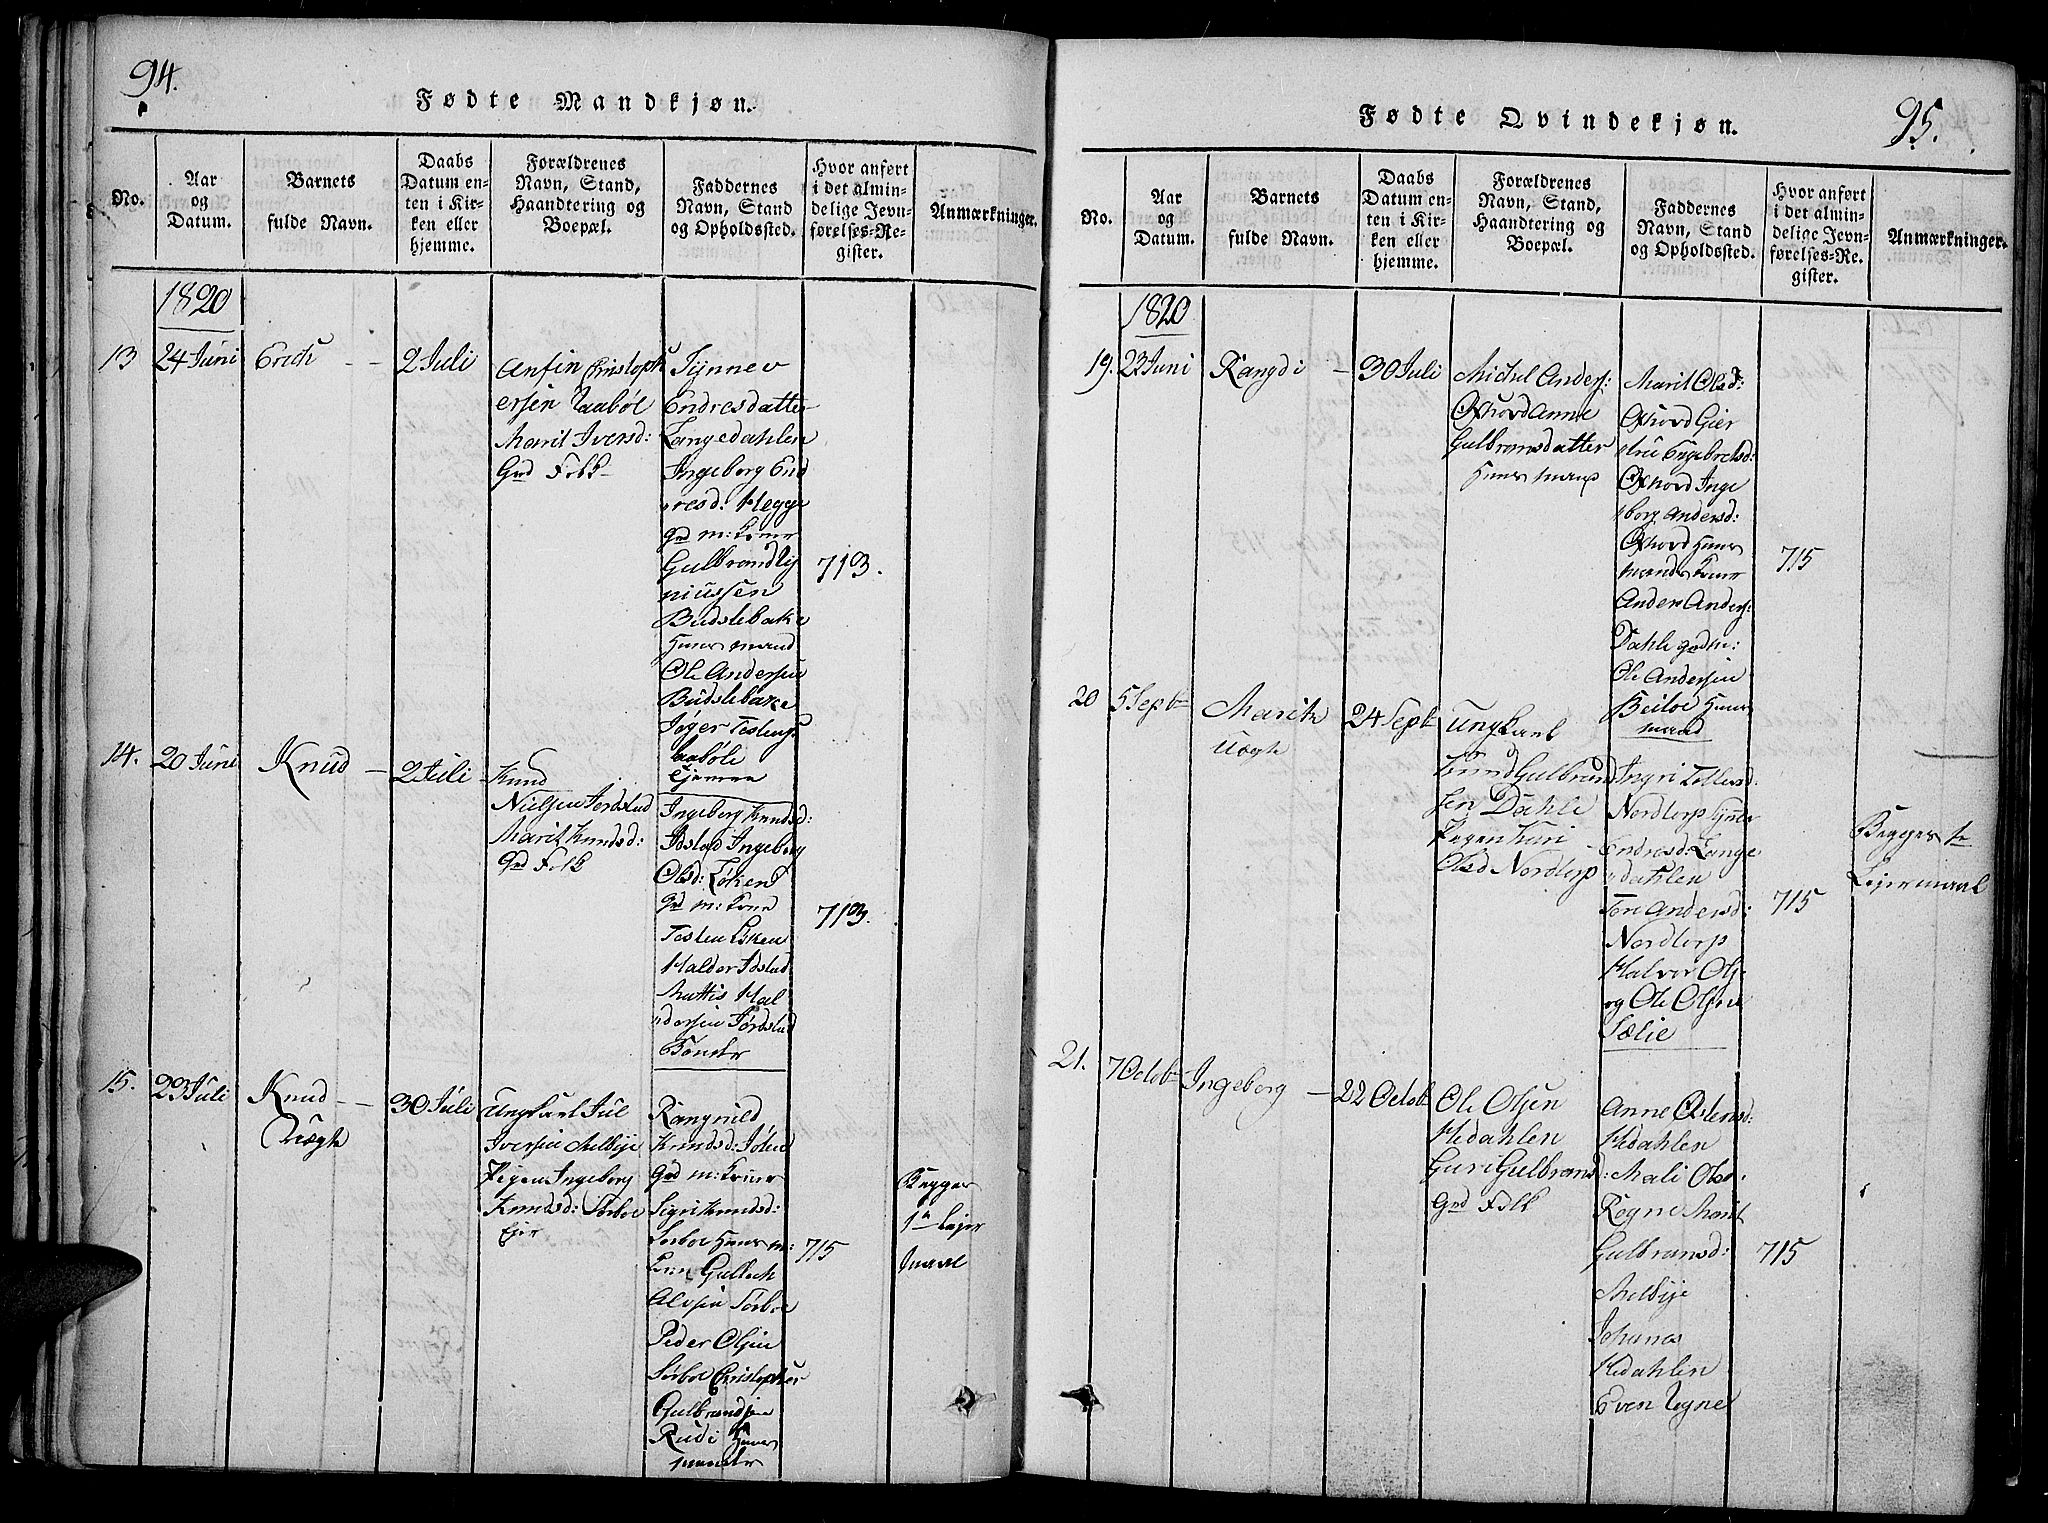 94.
Fødte Mandkjøn.
No.
Aar
og
Datum.
Barnets
fulde Navn.
Daabs
Datum en-
ten i Kir-
ken eller
hjemme.
Forældrenes
Navn, Stand,
Haandtering og
Boepæl.
Faddernes
Navn, Stand
og Opholdssted.
Hvor anført
i det almin-
delige Jevn-
førelses-Re-
gister.
Anmærkninger.
1820
13
24 Juni
Erich
2 Juli
Anfin Christoph
ersen
Marit Iversd:
Grd Folk
Synnev
Endresdatter
Langedahlen
Ingeborg End
resd: Hegge
Grd m: Kone
Gulbrand
Budslebake
Huusmand
Ole Andersen
Budslebake
713.
14.
20 Juni
Knud
2 Juli
Knud
Nielsen Jordstad
Marit Knudsd:
Grd Folk
Ingeborg Knudsd:
Idstad Ingeborg
Olsd: Løken
Grd m: Kone
Tosten Løken
Halder Idstad
Mattis Hal
dersen Jordstad
Bønder
713.
15.
23 Juli
Knud
Uægte
30 Juli
Ungkarl Jul
Iversen Melbye
Pigen Ingeborg
Knudsd: Sørboe
Ejer
Rangnild
Knudsd:
Grd m: Kone
Sigri Knudsd:
Sørboe Huusm:
Kone
Sørboe
Peder Olsen
Sørboe Christopher
Gulbrandsen
Rudi Huus
mænder
715
Begges
1te Lejer
maal
95.
Fødte Qvindekjøn.
No.
Aar
og
Datum.
Barnets
fulde Navn.
Daabs
Datum en-
ten i Kir-
ken eller
hjemme.
Forældrenes
Navn, Stand,
Haandtering og
Boepæl.
Faddernes
Navn, Stand
og Opholdssted.
Hvor anført
i det almin-
delige Jevn-
førelses-Re-
gister.
Anmærkninger.
1820
19.
23 Juni
Rangdi
30 Juli
Michel Anders:
Oxhovd Anne
Gulbransdatter
Huusmand
Marit Olsd:
Oxhovd Gier
tru Engebretsd:
Oxhovd Inge
borg Andersd:
Oxhovd Huus
mands Kone
Anders Anders:
Dahle
Ole Andersen
Beitoe Huus
mand
715
20
5 Septb
Marit
Uægte
24 Septb
Ungkarl
Knud Gulbrand
sen Dahle
Pigen Kari
Olsd Nordtorp
Ingri Tollevsd:
Nordtorp
Endresd: Lange
dahlen
Tore Andersd:
Nordtorp
Halvor Ols:
og Ole Olsen
Sælie
715
Begges 1te
Lejermaal
21.
7 Octob
Ingeborg
22 Octob
Ole Olsen
Hedahlen
Guri Gulbransd:
Grd Folk
Anne Østensd:
Hedahlen
Mali Olsd
Rogne Marit
Gulbransd:
Melbye
Johanes
Hedahlen
Even
715